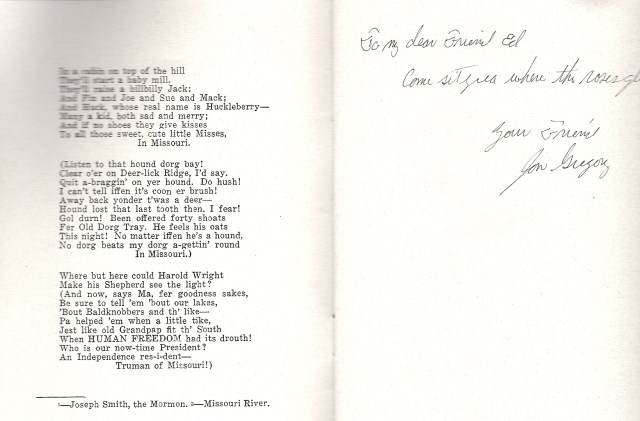 In a cabin on top of the hill
They'll start a baby mill.
They'll raise a hillbilly Jack;
And Fin and Joe and Sue and Mack;
And Huck, whose real name is Huckleberry—
Many a kid, both sad and merry;
And if no shoes they give kisses
To all those sweet, cute little Misses,
In Missouri.
(Listen to that hound dorg bay!
Clear o'er on Deer-lick Ridge, I'd say.
Quit a-braggin' on yer hound. Do hush!
I can't tell iffen it's coon er brush!
Away back yonder t'was a deer—
Hound lost that last tooth then. I fear!
Gol durn! Been offered forty shoats
Fer Old Dorg Tray. He feels his oats
This night! No matter iffen he's a hound,
No dorg beats my dorg a-gettin' round
In Missouri.)
Where but here could Harold Wright
Make his Shepherd see the light?
(And now, says Ma, fer goodness sakes,
Be sure to tell 'em 'bout our lakes,
'Bout Baldknobbers and th' like—
Pa helped 'em when a little tike,
Jest like old Grandpap fit th' South
When HUMAN FREEDOM had its drouth!
Who is our now-time President?
An Independence res-i-dent—
Truman of Missouri!)
¹—Joseph Smith, the Mormon. ²—Missouri River.
To my dear Friend Ed
Come sit where the roses
Your Friend
Jon Gregory